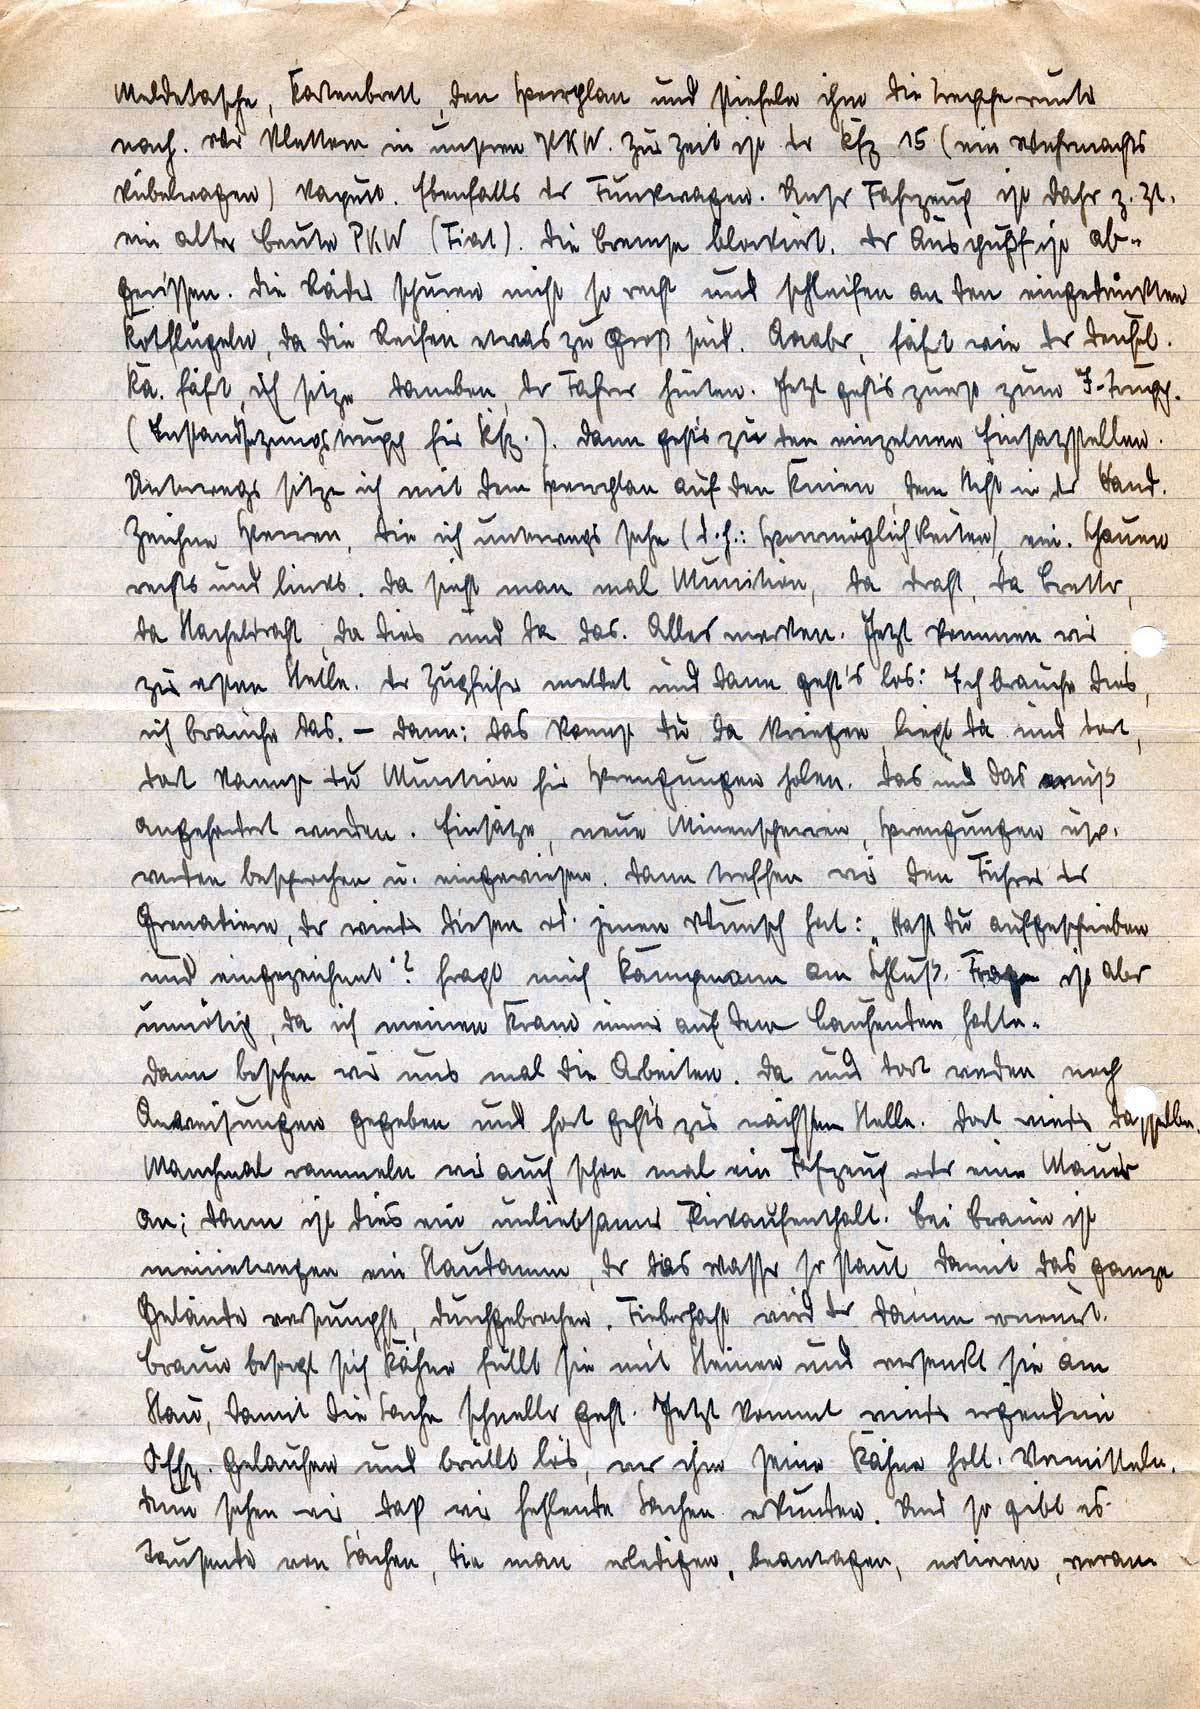 Meldetasche, Kartenbrett, den Sperrplan und stiefeln ihm die Treppe runter
nach. Wir klettern in unseren PKW. Zur Zeit ist der Kfz 15 (ein Wehrmachts
kübelwagen) kaput. Ebenfalls der Funkwagen. Unser Fahrzeug ist daher z. Zt.
ein alter Beute PKW (Fiat). Die Bremse blockiert. Der Auspuff ist ab-
gerissen. Die Räder spuren nicht so recht und schleifen an den eingedrückten
Kotflügeln, da die Reifen etwas zu groß sind. Aaaber, fährt wie der Teufel.
Kä. fährt, ich sitze daneben, der Fahrer hinten. Jetzt geht's zuerst zum J-Trupp.
(Instandsetzungstrupp für Kfz.). Dann geht's zu den einzelnen Einsatzstellen.
Unterwegs sitze ich mit dem Sperrplan auf den Knien, dem Stift in der Hand.
Zeichne Sperren, die ich unterwegs sehe (d.h.: Sperrmöglichkeiten) ein. Schauen
rechts und links. Da sieht man mal Munition, da Draht, da Bretter,
da Stacheldraht, da dies und da das. Alles merken. Jetzt kommen wir
zur ersten Stelle. Der Zugführer meldet und dann geht's los: Ich brauche dies,
ich brauche das. – Dann: Das kannst du da kriegen, liegt da und dort,
dort kannst du Munition für Sprengungen holen. Das und das muß
angefordert werden. Einsätze, neue Minensperren, Sprengungen usw.
werden besprochen u. eingewiesen. Dann treffen wir den Führer der
Grenadiere, der wieder diesen od. jenen Wunsch hat: „Hast du aufgeschrieben
und eingezeichnet"? fragt mich Kampmann am Schluß. Frage ist aber
unnötig, da ich meinen Kram immer auf dem Laufenden halte.
Dann besehen wir uns mal die Arbeiten. Da und dort werden noch
Anweisungen gegeben und fort geht's zur nächsten Stelle. Dort wieder dasselbe.
Manchmal rammeln wir auch schon mal ein Fahrzeug oder eine Mauer
an; dann ist dies ein unliebsamer Aufenthalt. Bei Braun ist
meinetwegen ein Staudamm, der das Wasser so staut damit das ganze
Gelände versumpft, durchgebrochen. Fieberhaft wird der Damm erneuert.
Braun besorgt sich Kähne füllt sie mit Steinen und versenkt sie am
Stau, damit die Sache schneller geht. Jetzt kommt wieder irgendein
Offz. gelaufen und brüllt los, wer ihm seine Kähne holt. Vermitteln.
Dann sehen wir daß wir fehlende Sachen erkunden. Und so gibt es
Tausende von Sachen, die man erledigen, beantragen, notieren, veran-